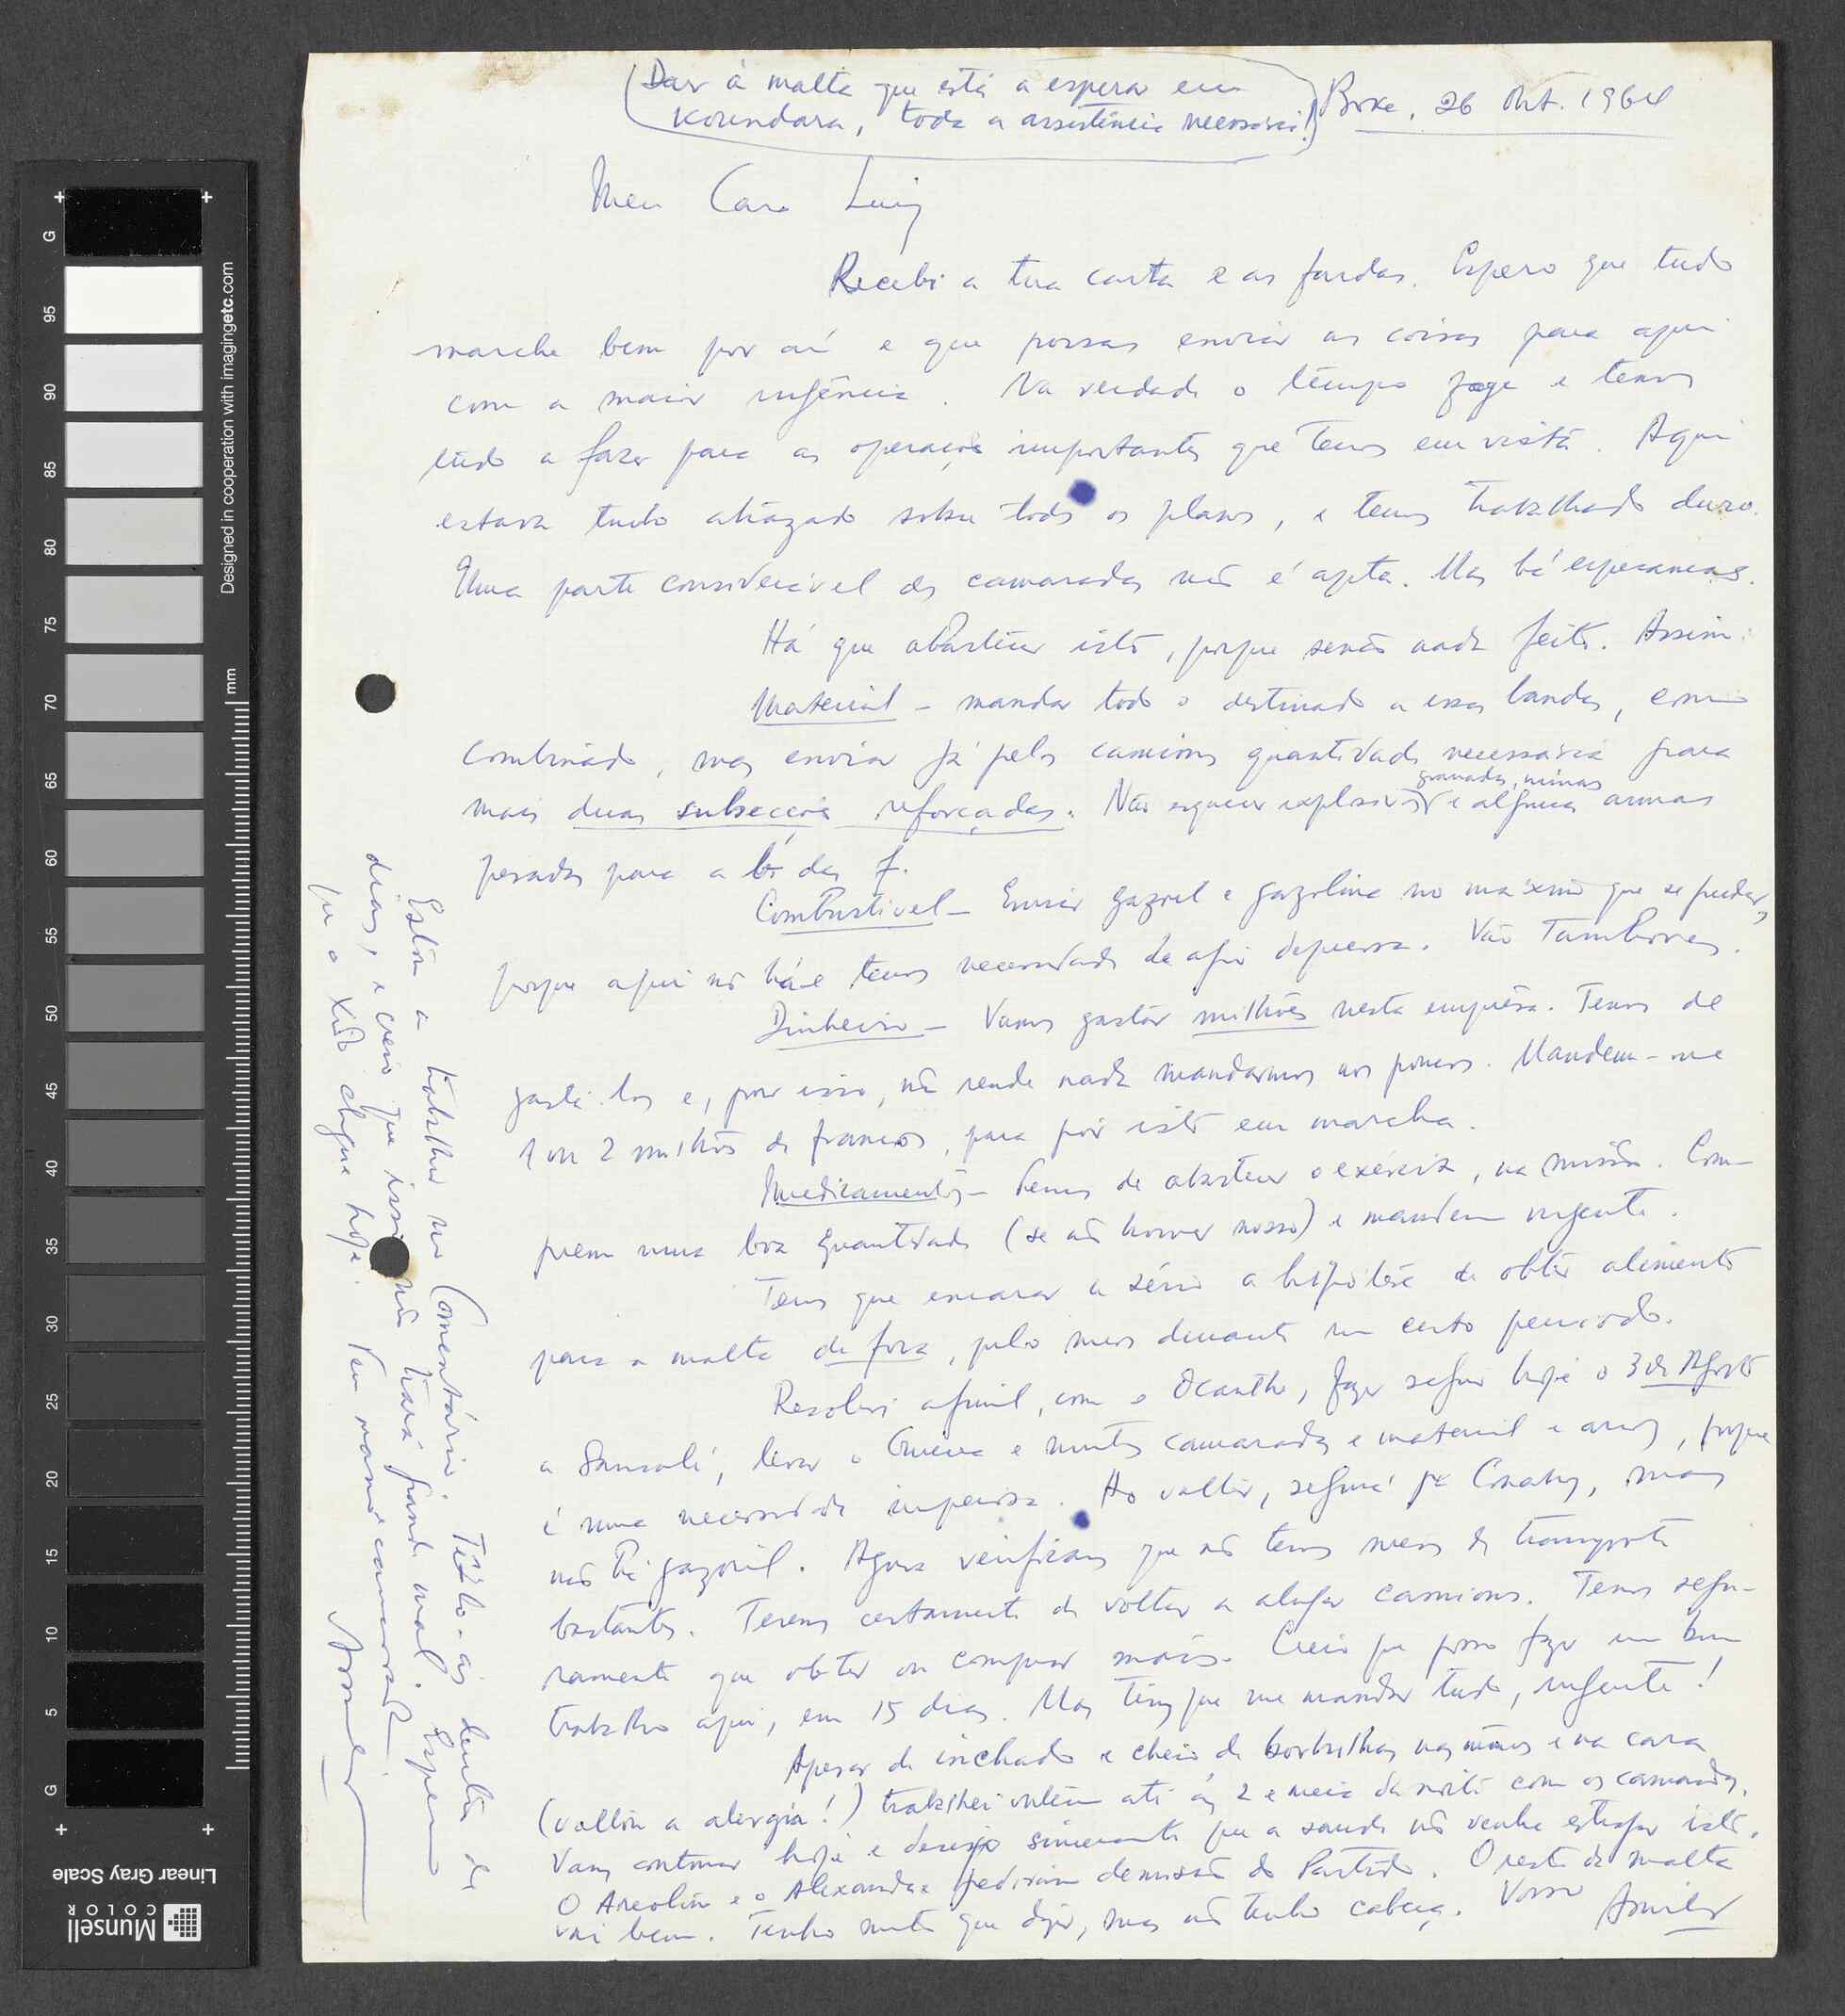 (Dar à malta que está a espera em
Korendara, toda a assistência necessária!)
Boke, 26 Out. 1964
Meu Caro Luiz
Recebi a tua carta e as fardas. Espero que tudo
marche bem por aí e que possas enviar as coisas para aqui
com a maior urgência. Na verdade o tempo foge e temos
tudo a fazer para as operações importantes que temos em vista. Aqui
estava tudo atrazado sobre todos os planos, e temos trabalhado duro.
Uma parte considerável dos camaradas não é apta. Mas há esperanças.
Há que abastecer isto, porque senão nada feito. Assim:
Material - mandar todo o destinado a essas bandas, como
combinado, mas enviar já pelos camions quantidade necessária para
mais duas subsecções reforçadas. Não esquecer explosivos, granadas, minas e algumas armas
pesadas para a das f.
Combustível - Enviar gazoil e gazolina no máximo que se puder,
porque aqui não há e temos necessidade de agir depressa. Vão Tambores.
Dinheiro - Vamos gastar milhões nesta emprêsa. Temos de
gastá-los e, por isso, não rende nada mandarmos aos poucos. Mandem-me
1 ou 2 milhões de francos, para pôr isto em marcha.
Medicamentos - Temos de abastecer o exército, na missão. Com-
prem uma boa quantidade (se não houver nosso) e mandem urgente.
Temos que encarar a sério a hipótese de obter alimentos
para a malta de fora, pelo menos durante um certo período.
Resolvi afinal, com o Ocante, fazer seguir hoje o 3 de Agosto
a Sansalé, levar o e muitos camaradas e material e arroz, porque
é uma necessidade imperiosa. Ao voltar, seguirá pª Conakry, mas
não há gazoil. Agora verificamos que não temos meios de transporte
bastantes. Teremos certamente de voltar a alugar camions. Temos segu-
ramente que obter ou comprar mais. Creio que posso fazer um bom
trabalho aqui, em 15 dias. Mas têm que me mandar tudo, urgente!
Apesar de inchado e cheio de borbulhas nas mãos e na cara
(voltou a alergia!) trabalhei ontem até às 2 e meia da noite com os camaradas.
Vamos continuar hoje e desejo sinceramente que a saude não venha estragar isto.
O Areolino e o Alexandre pediram demissão do Partido. O resto da malta
vai bem. Tenho muito que dizer, mas não tenho cabeça. Vosso Amilcar
Estou a trabalhar no Comentário. Tê-lo-ás dentro de
dias, e creio que isso não trará grande mal. Espero
que o Xid chegue hoje. Teu mano e camarada
Amilcar
Designed in cooperation with imagingetc.com
mm
G
95
90
85
80
75
70
65
60
55
50
45
40
35
30
25
20
15
10
5
G
Linear Gray Scale
Munsell
COLOR